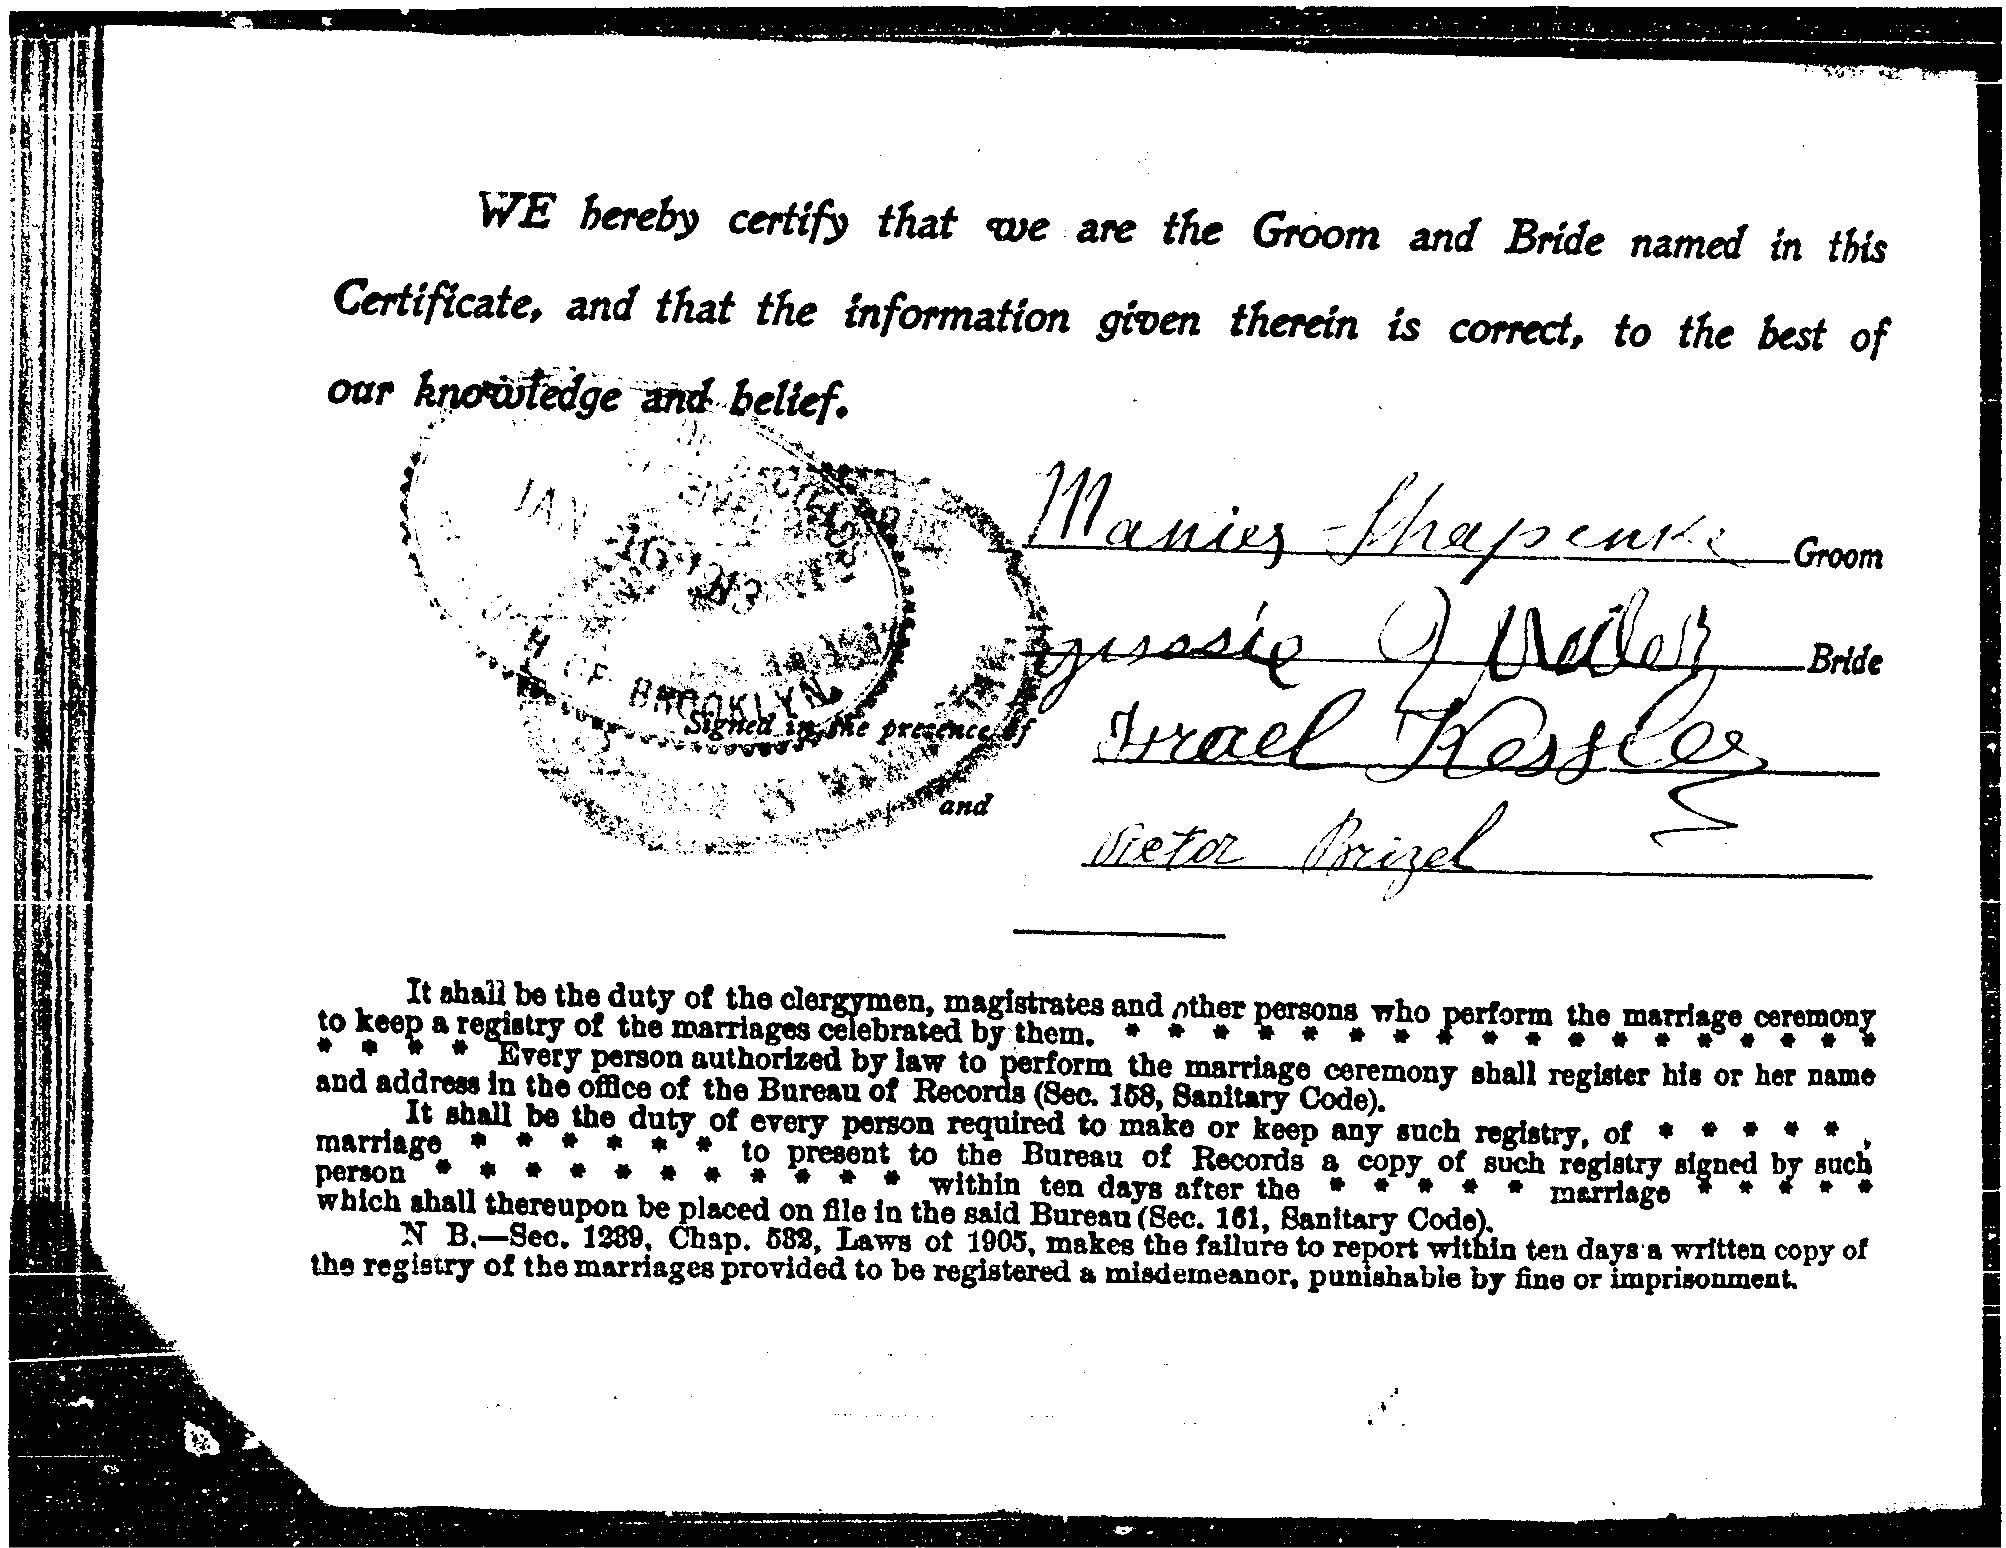 WE hereby certify that we are the Groom and Bride named in this
Certificate, and that the information given therein is correct, to the best of
our knowledge and belief.
JAN
Groom
Bride
H OF BROOKLYN
Signed in the presence of
Israel Kessler
and
Victor Brizel
It shall be the duty of the clergymen, magistrates and other persons who perform the marriage ceremony
to keep a registry of the marriages celebrated by them. * * * * * * * * * * * * * * * * * *
* * * * Every person authorized by law to perform the marriage ceremony shall register his or her name
and address in the office of the Bureau of Records (Sec. 158, Sanitary Code).
It shall be the duty of every person required to make or keep any such registry, of * * * * * ,
marriage * * * * * * to present to the Bureau of Records a copy of such registry signed by such
person * * * * * * * * * * * within ten days after the * * * * * marriage * * * * *
which shall thereupon be placed on file in the said Bureau (Sec. 161, Sanitary Code).
N B.—Sec. 1239, Chap. 532, Laws of 1905, makes the failure to report within ten days a written copy of
the registry of the marriages provided to be registered a misdemeanor, punishable by fine or imprisonment.